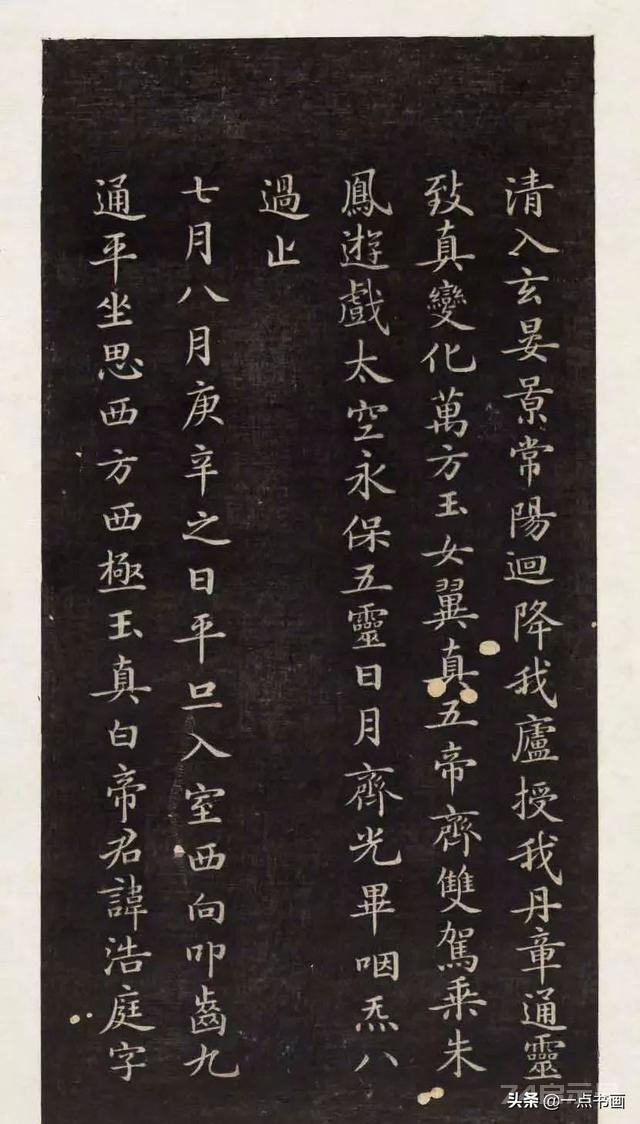 清入玄晏景常陽迴降我廬授我丹章通靈
致真變化萬方玉女翼真五帝齊雙駕乗朱
鳳遊戲太空永保五靈日月齊光畢咽炁八
過止
七月八月庚辛之日平旦入室西向叩齒九
通平坐思西方西極玉真白帝君諱浩庭字
头条 @一点书画